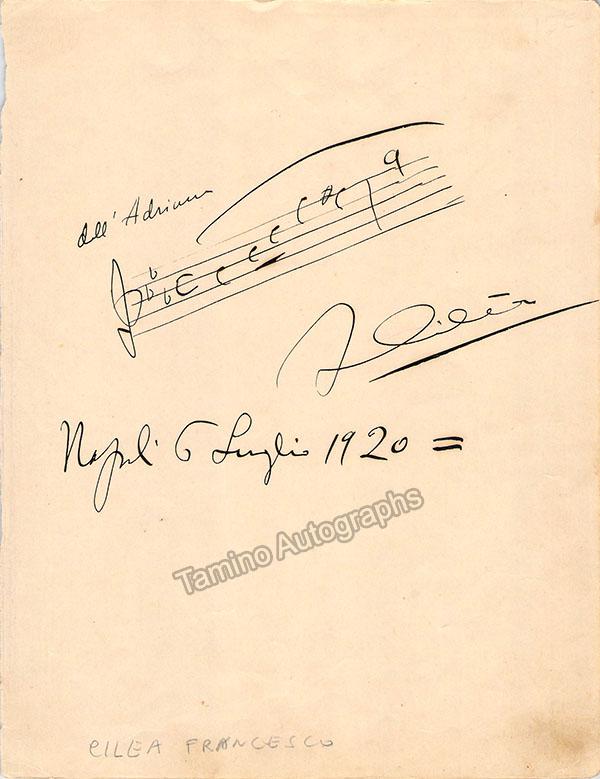 dell' Adriana
F Cilèa
Napoli 6 Luglio 1920 =
Tamino Autographs
CILEA FRANCESCO